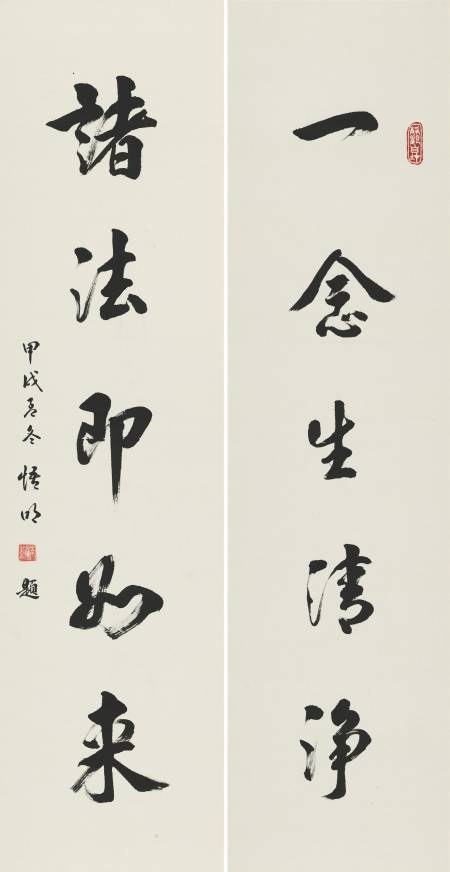 一念生清浄
諸法即如来
甲戌孟冬 悟明 題